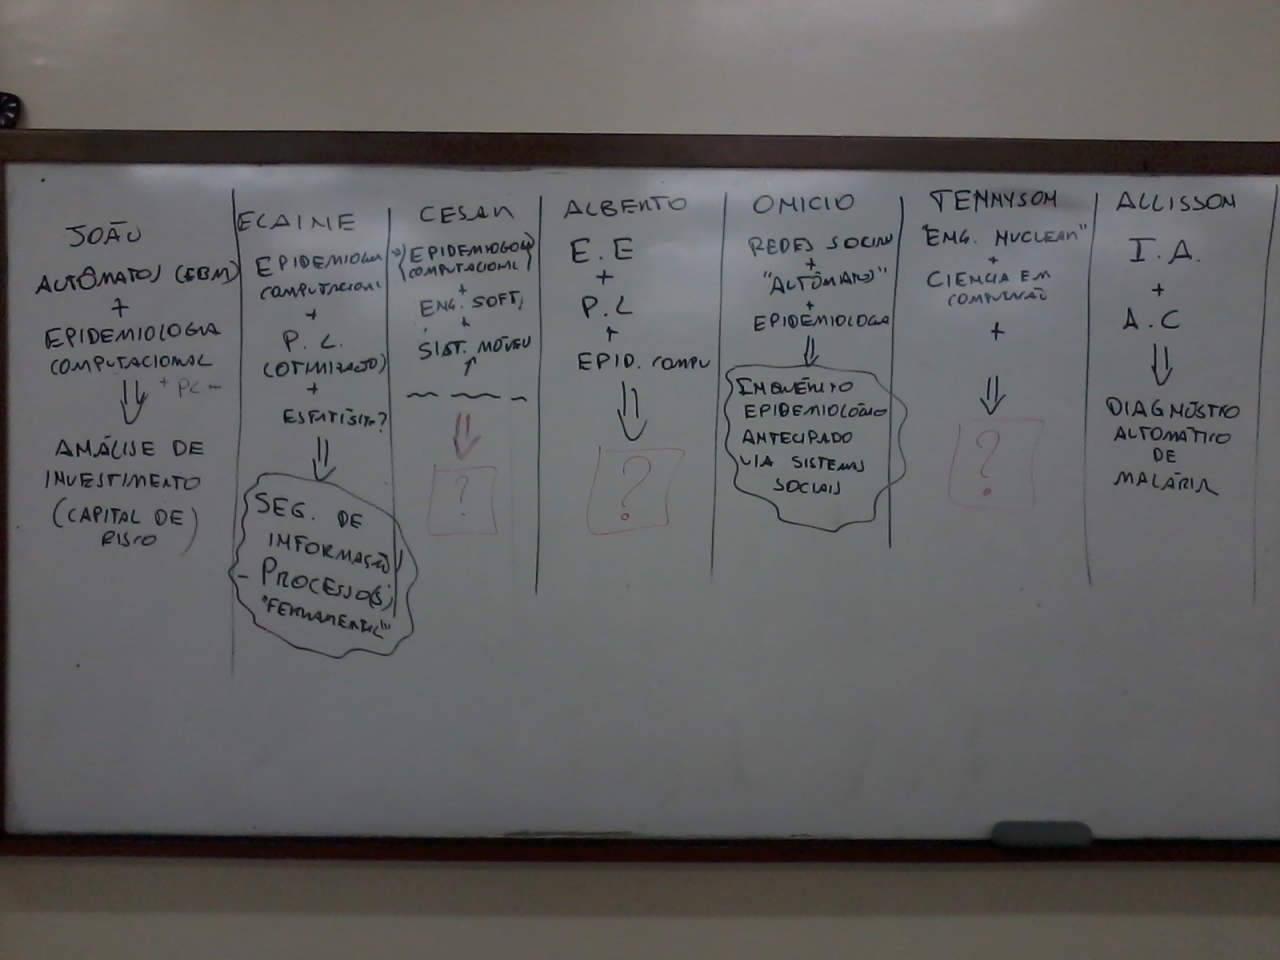 JOÃO
AUTÔMATOS (EBM)
+
EPIDEMIOLOGIA
COMPUTACIONAL
+ PL
ANÁLISE DE
INVESTIMENTO
(CAPITAL DE
RISCO)
ELAINE
EPIDEMIOLOGIA
COMPUTACIONAL
+
P. L.
(OTIMIZAÇÃO)
+
ESTATÍSTICA?
SEG. DE
INFORMAÇÃO
- PROCESSO(S)
"FERRAMENTAL"
CESAR
(EPIDEMIOLOGIA
COMPUTACIONAL)
+
ENG. SOFT.
+
SIST. MÓVEIS
?
ALBERTO
E.E
+
P.L
+
EPID. COMPU
?
ONICIO
REDES SOCIAIS
+
"AUTÔMATOS"
+
EPIDEMIOLOGIA
INQUÉRITO
EPIDEMIOLÓGICO
ANTECIPADO
VIA SISTEMAS
SOCIAIS
TENNYSON
"ENG. NUCLEAR"
+
CIÊNCIA EM
COMPUTAÇÃO
+
?
ALLISSON
I.A.
+
A.C
DIAGNÓSTICO
AUTOMÁTICO
DE
MALÁRIA